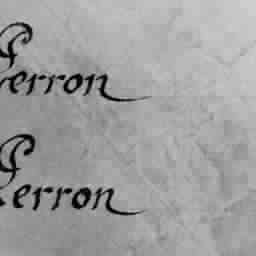 Perron
Perron